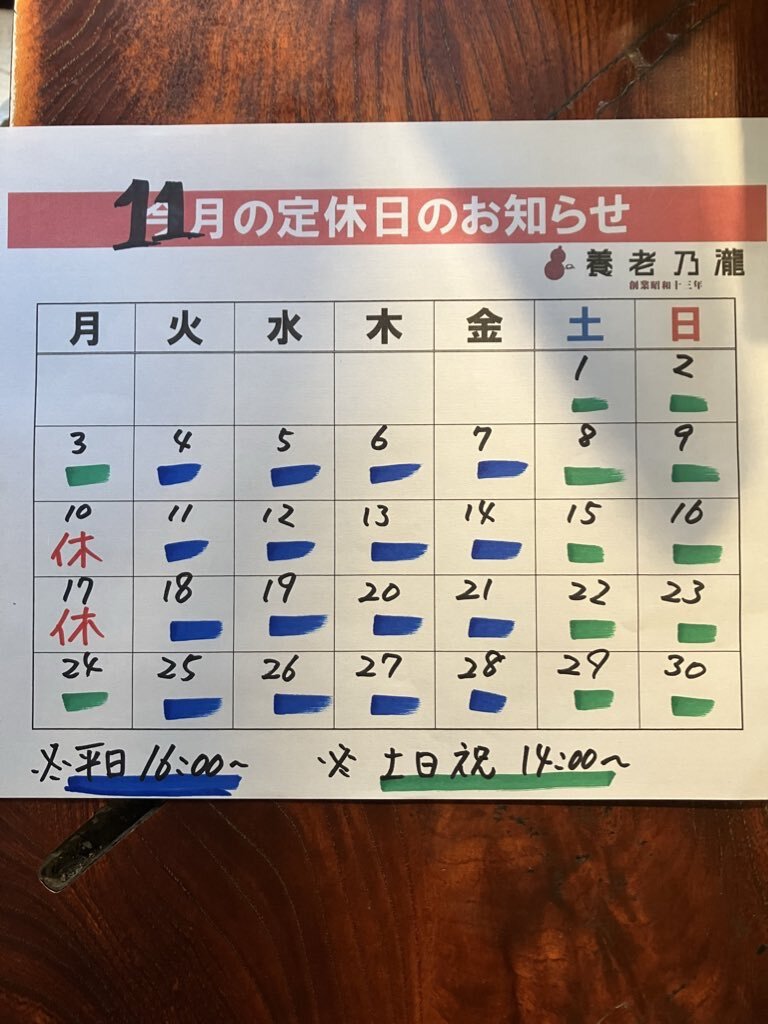 11月の定休日のお知らせ
養老乃瀧
創業昭和十三年
月 火 水 木 金 土 日
1 2
3 4 5 6 7 8 9
10 11 12 13 14 15 16
休
17 18 19 20 21 22 23
休
24 25 26 27 28 29 30
※平日 16:00~ ※土日祝 14:00~